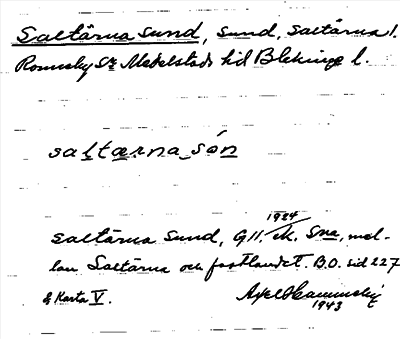 Saltärna sund, sund, Saltärna l.
Ronneby sn Medelstads hd Blekinge l.
saltærna són
1924
Saltärna sund, Gll. ek. Sna, mel-
lan Saltärna och fastlandet. B.O. sid 227
& Karta V.
1943